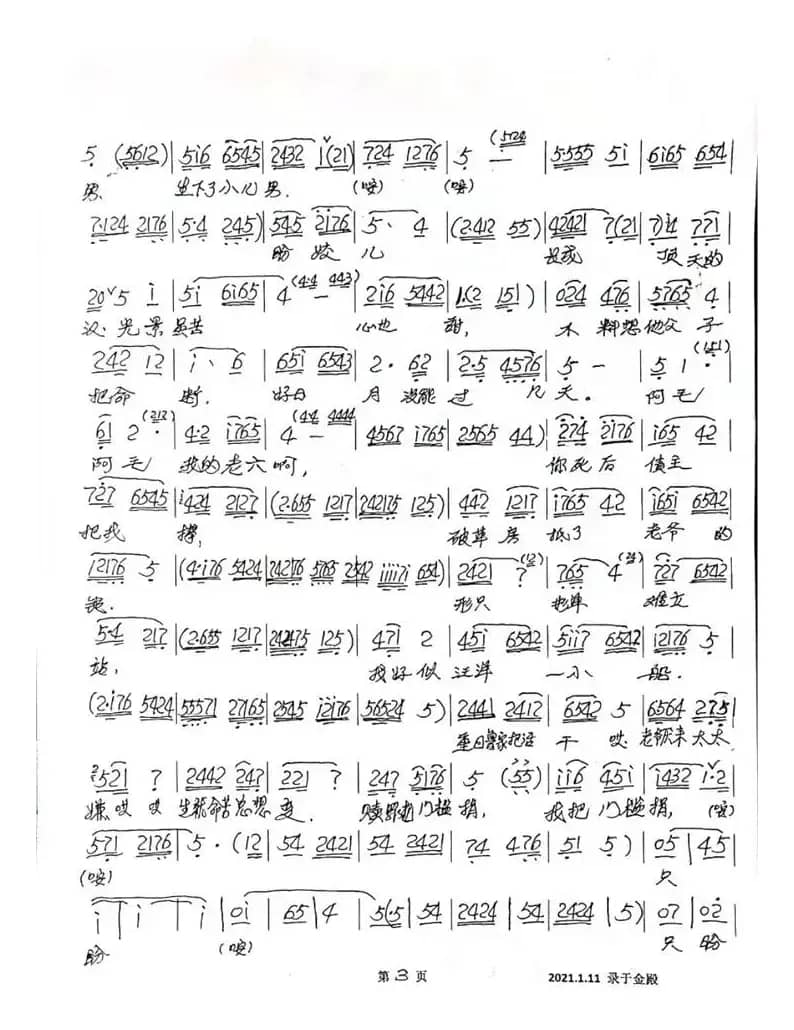 5 (5612) | 5i6 6545 | 2432 i(21) | 724 1276 | 5 — (5724 | 5·555 5i | 6165 654 |
男 生下了小儿男. (咹) (咹)
7·124 2176 | 5·4 245) | 545 2176 | 5· 4 | (2·412 55) | 42421 7(21 | 7)i4 771 |
盼 姣 儿 是我 顶天的
20 5 i | 5i 6165 | 4 — (4·4 443) | 2i6 5442 | 1·(2 151) | 024 476 | 5765 4 |
汉. 光景虽苦 心也 甜, 木 料想他父 子
242 12 | i· 6 | 65i 6543 | 2· 62 | 2·5 4576 | 5 — | 5 1· (151) |
把命 断. 好日 月 没能 过 几 天. 阿毛
6i 2· (212) | 4·2 i765 | 4 — (4·4 4444 | 4567 i765 | 2565 44) | 274 2176 | i65 42 |
阿毛 我的老六啊, 你死后 债主
727 6545 | 424 2127 | (2·655 1217 | 242175 125) | 442 1217 | i765 42 | i65i 6542 |
把我 撵, 破草房 抵了 老爷 的
12176 5 | (4·i76 5424 | 242176 5765 2542 iiii7i 654) | 2421 7 (12) | 765 4 (24) | 727 6542 |
形只 影单 难立
5·4 217 | (2·655 1217 | 242475 125) | 471 2 | 45i 6542 | 5ii7 6542 | i2176 5 |
站, 我好似 汪洋 一小 船.
(2·i76 5424 | 55571 27165 | 2545 i2i76 | 56524 5) | 2441 2412 | 6542 5 | 6564 275 |
重回鲁家把活 干 哎 老爷来太太
521 7 | 2442 247 | 221 7 | 247 5176 | 5 (55) | ii6 45i | i432 1·2 |
嫌哎 哎 生就命苦怎想 变. 赎罪把门槛捐, 我把门槛捐, (咹)
571 2176 | 5· (12 | 54 2421 | 54 2421 | 74 476 | 51 5) | 05 | 45 |
(咹) 只
i | i | i | i | 0i | 65 | 4 | 5(5 | 54 | 2424 | 54 | 2424 | 5) | 07 | 02 |
盼 (咹) 只 盼
第 3 页 2021.1.11 录于金殿